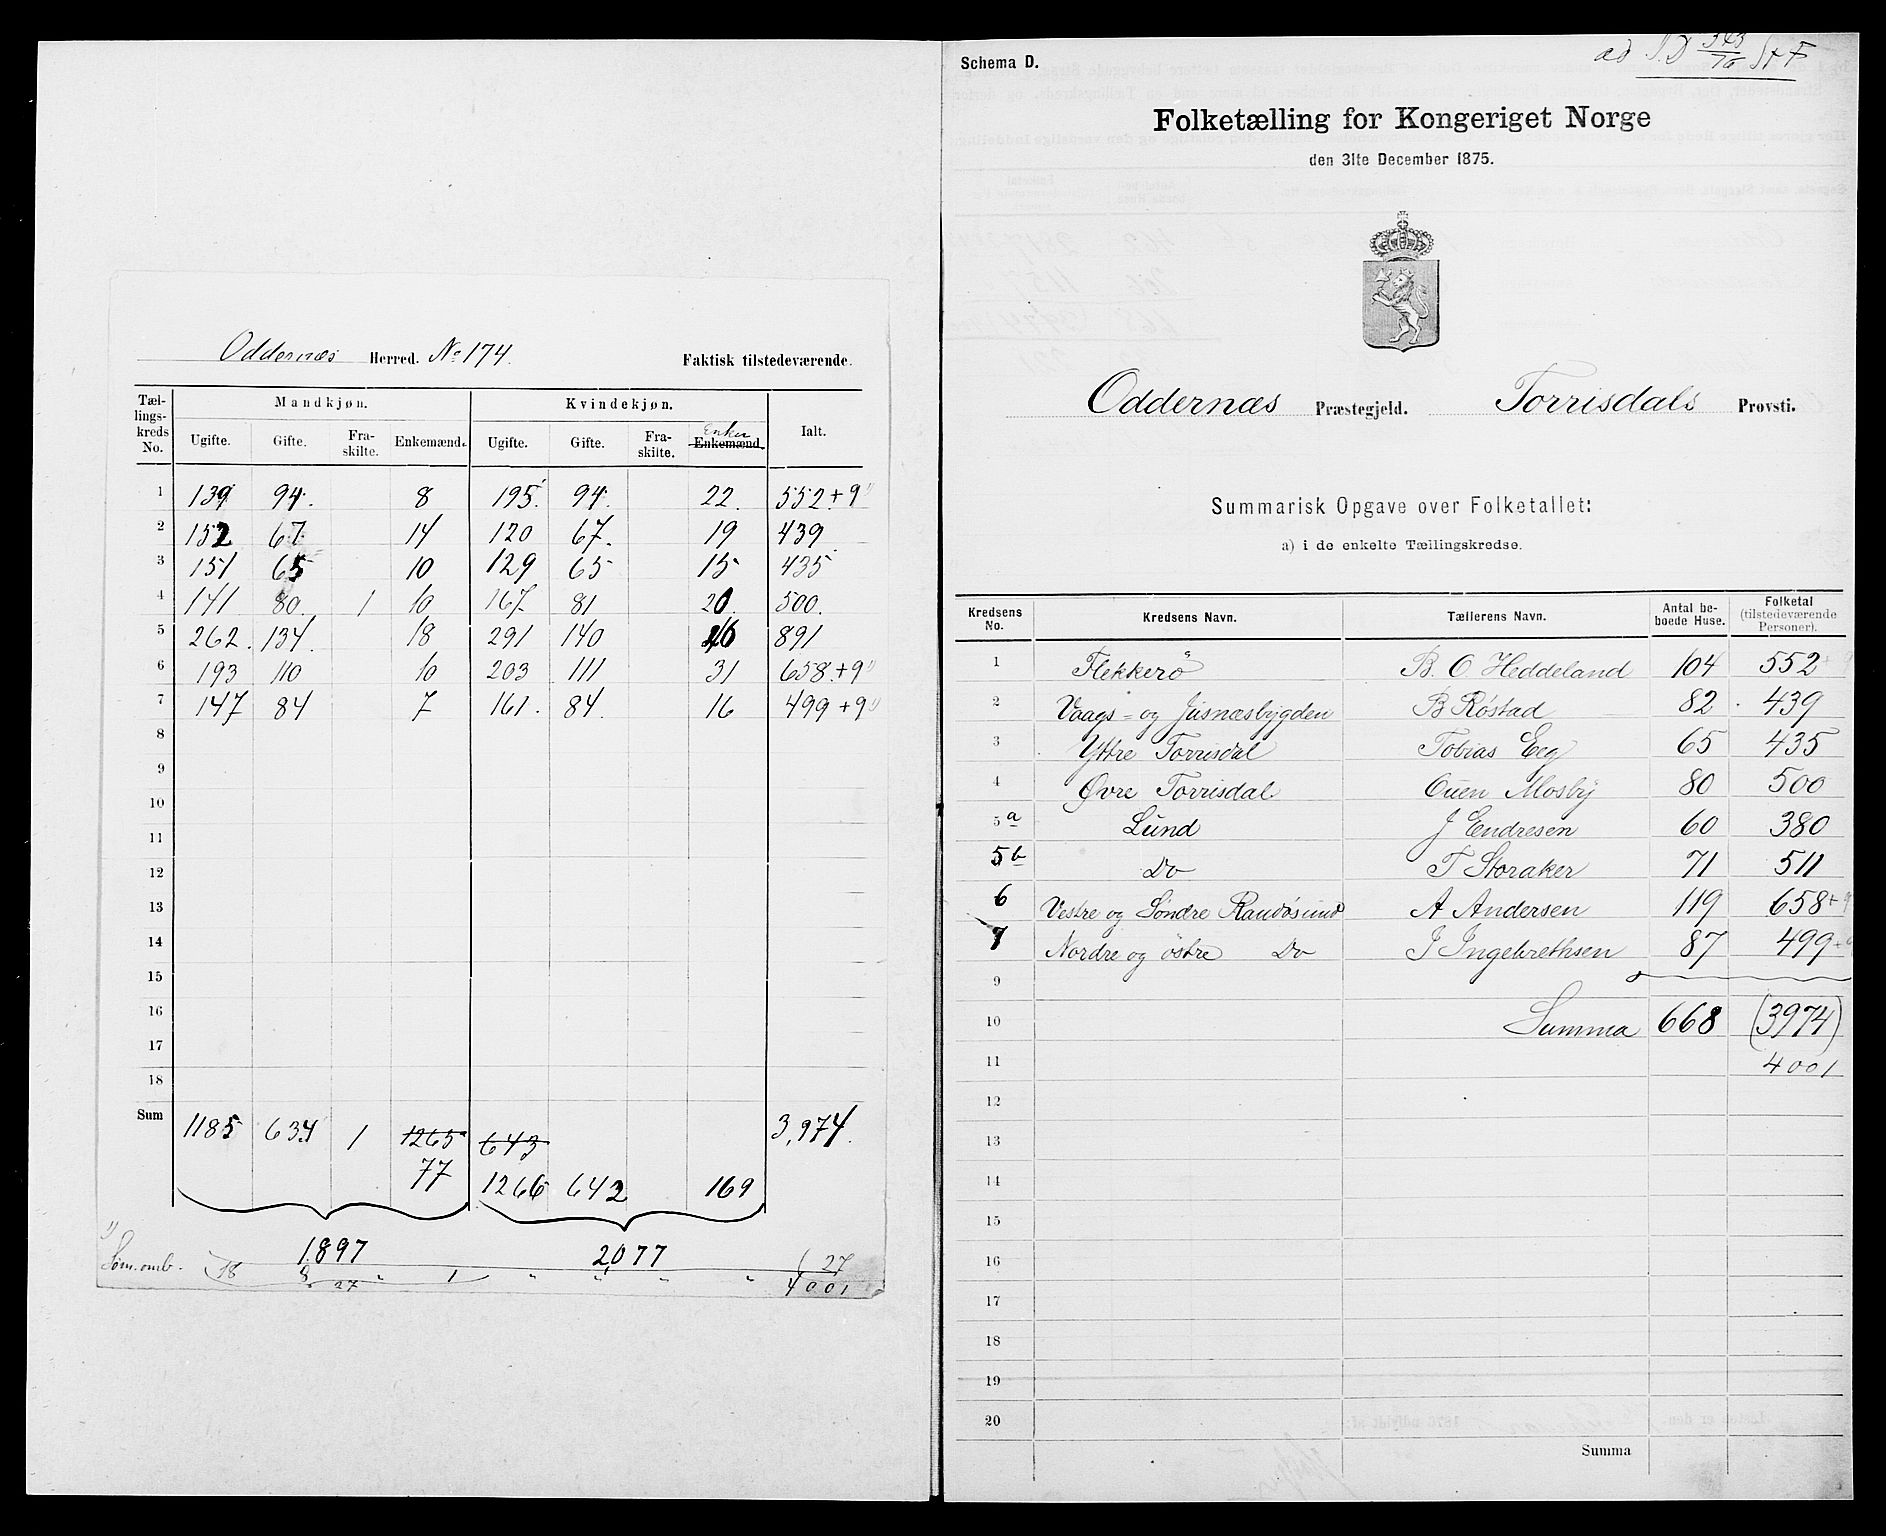 Oddernæs Herred. No 174. Faktisk tilstedeværende.
Tællingskreds No. Mandkjøn. Kvindekjøn. Ialt.
Ugifte. Gifte. Fraskilte. Enkemænd. Ugifte. Gifte. Fraskilte. Enkemænd. Enker
1 139 94. 8 195. 94. 22. 552 + 9 1)
2 152 67. 14 120 67. 19 439
3 151 65 10 129 65 15 435
4 141 80. 1 10 167 81 20. 500.
5 262. 134. 18 291 140 46 891
6 193 110 10 203 111 31 658. + 9 1)
7 147 84 7 161. 84. 16 499 + 9 1)
8
9
10
11
12
13
14
15
16
17
18
Sum 1185 634 1 1265 643 3,974.
77 1266 642 169
1897 2077
1) Søm. omb. 18 8 " 1 " " " " 27
27 4001
Schema D.
ad J.D 343/76 St F
Folketælling for Kongeriget Norge
den 31te December 1875.
Oddernæs Præstegjeld. Torrisdals Provsti.
Summarisk Opgave over Folketallet:
a) i de enkelte Tællingskredse.
Kredsens No. Kredsens Navn. Tællerens Navn. Antal beboede Huse. Folketal (tilstedeværende Personer).
1 Flekkerö B. O. Heddeland 104 552 + 9
2 Vaags- og Jusnæsbygden B Röstad 82 439
3 Yttre Torrisdal Tobias Eeg 65 435
4 Øvre Torrisdal Ouen Mosby 80 500
5 a Lund J Endresen 60 380
5 b Do T Storaker 71 511
6 Vestre og Søndre Randøsund A Andersen 119 658 + 9
7 Nordre og østre Do J Ingebrethsen 87 499 + 9
9
10 Summa 668 (3974)
11 4001
12
13
14
15
16
17
18
19
20
Summa